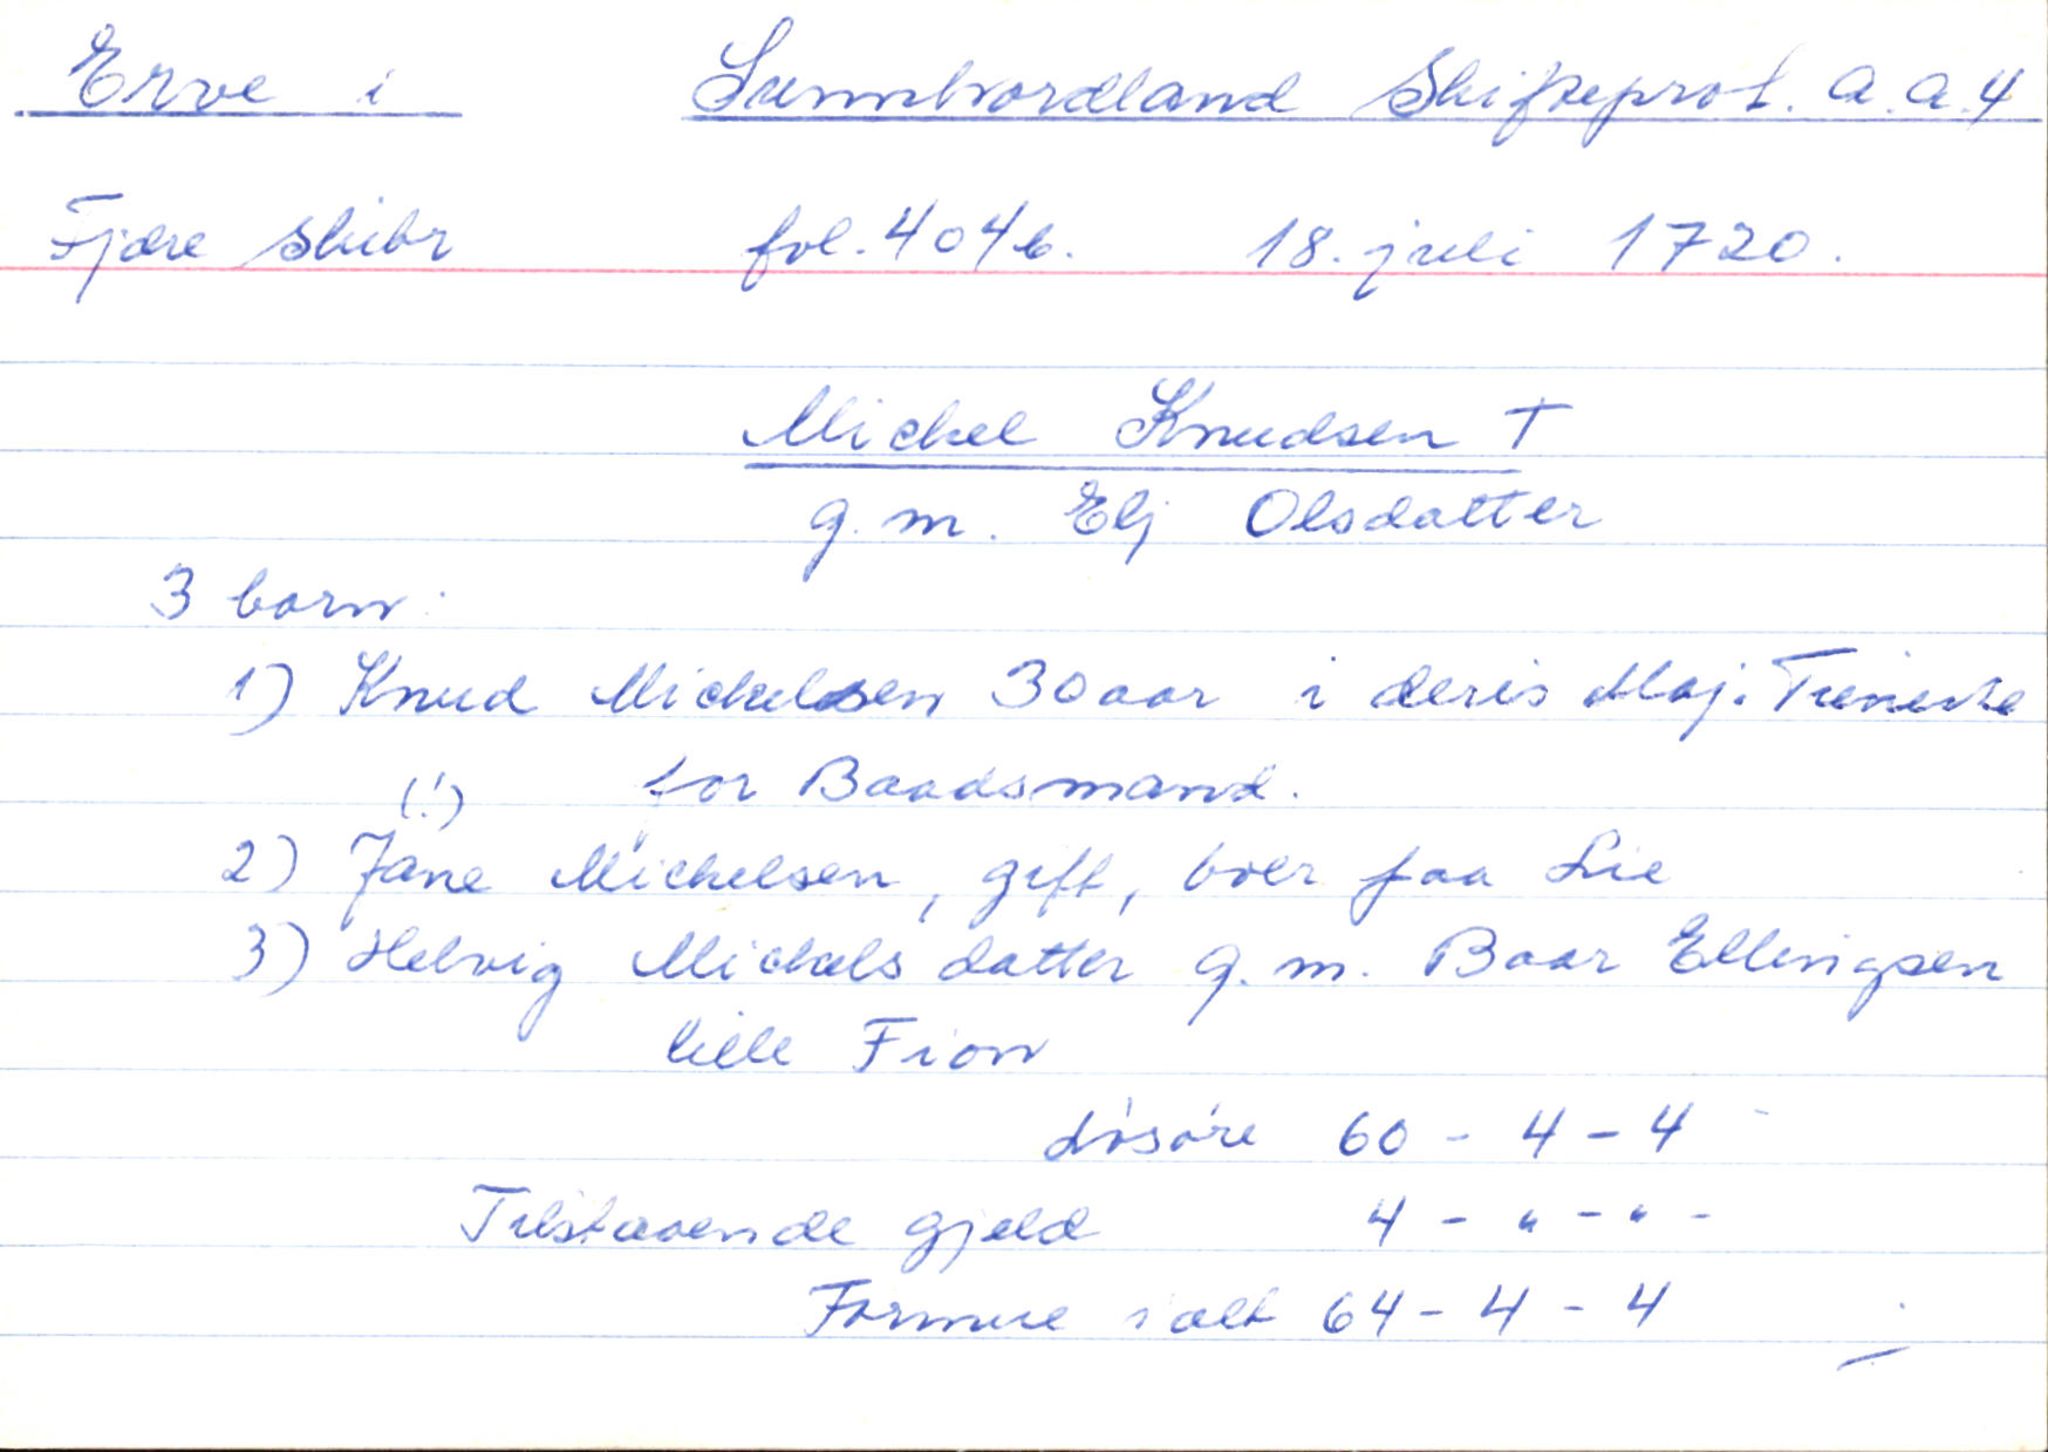 Erve i Sunnhordland Skifteprot. A.a.4
Fjære skibr fol. 404b. 18. juli 1720.
Michel Knudsen †
g. m. Elj Olsdatter
3 born:
1) Knud Michelsen 30 aar i deris Maj. Tieniste
(!) for Baadsmand.
2) Jane Michelsen, gift, boer paa Lie
3) Helvig Michels datter g. m. Baar Ellingsen
lille Fion
Løsøre 60 - 4 - 4
Tilstaaende gjeld 4 - " - " -
Formue ialt 64 - 4 - 4